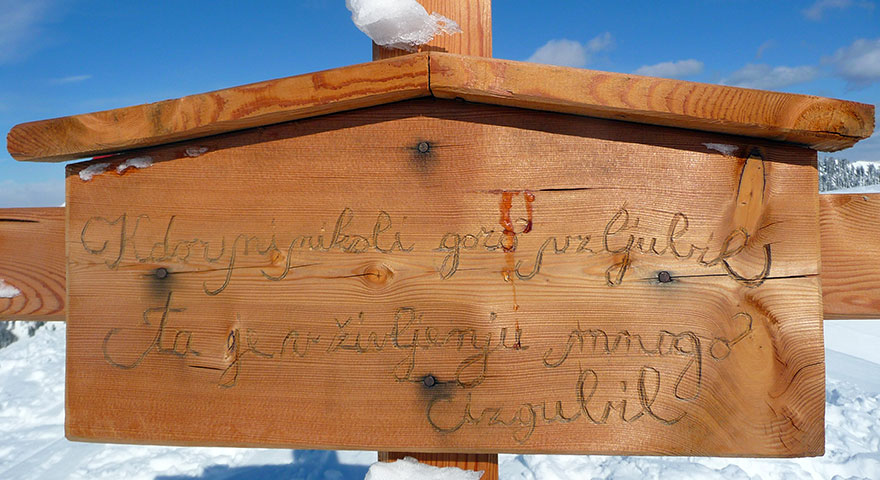 Kdor ni nikoli goro vzljubil
ta je v življenju mnogo
izgubil